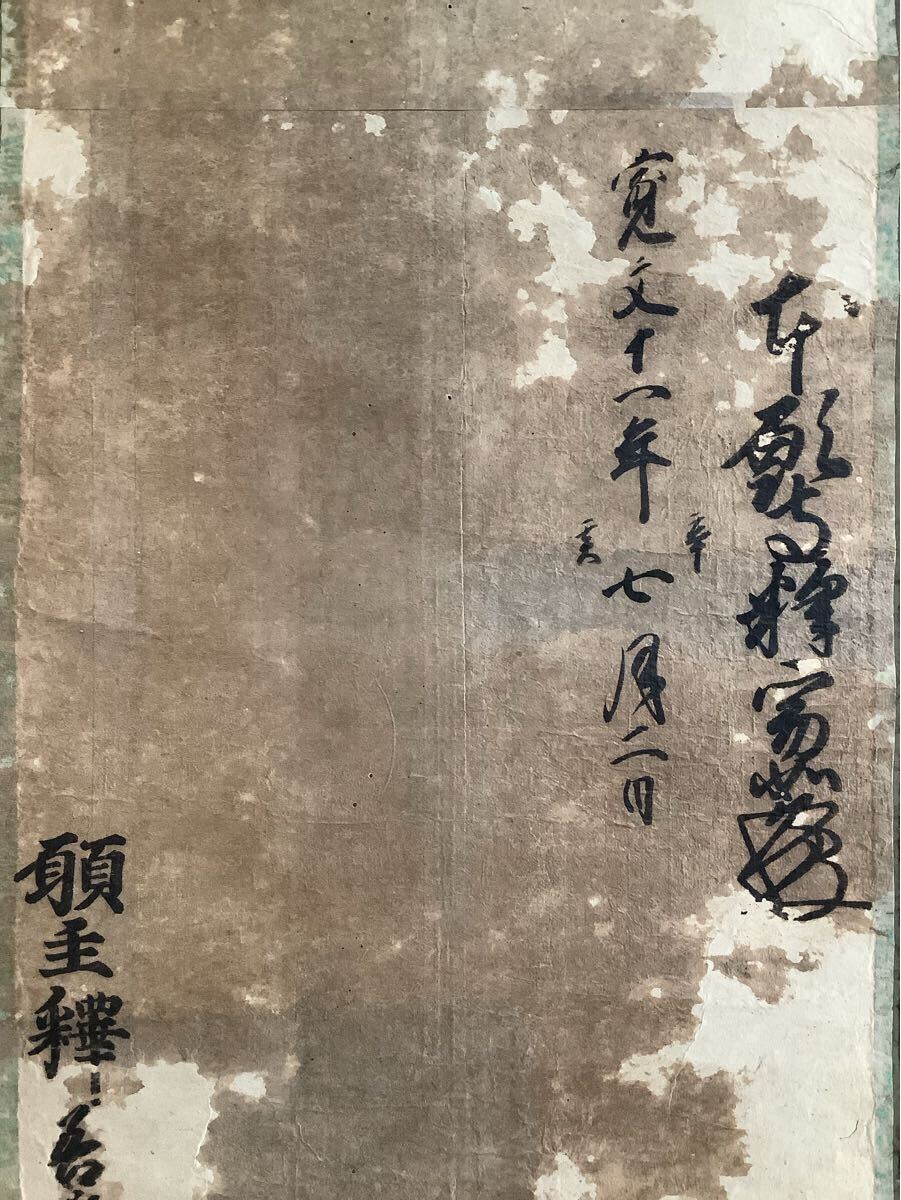 本願寺釋寂如
寛文十一年辛亥七月二日
願主釋